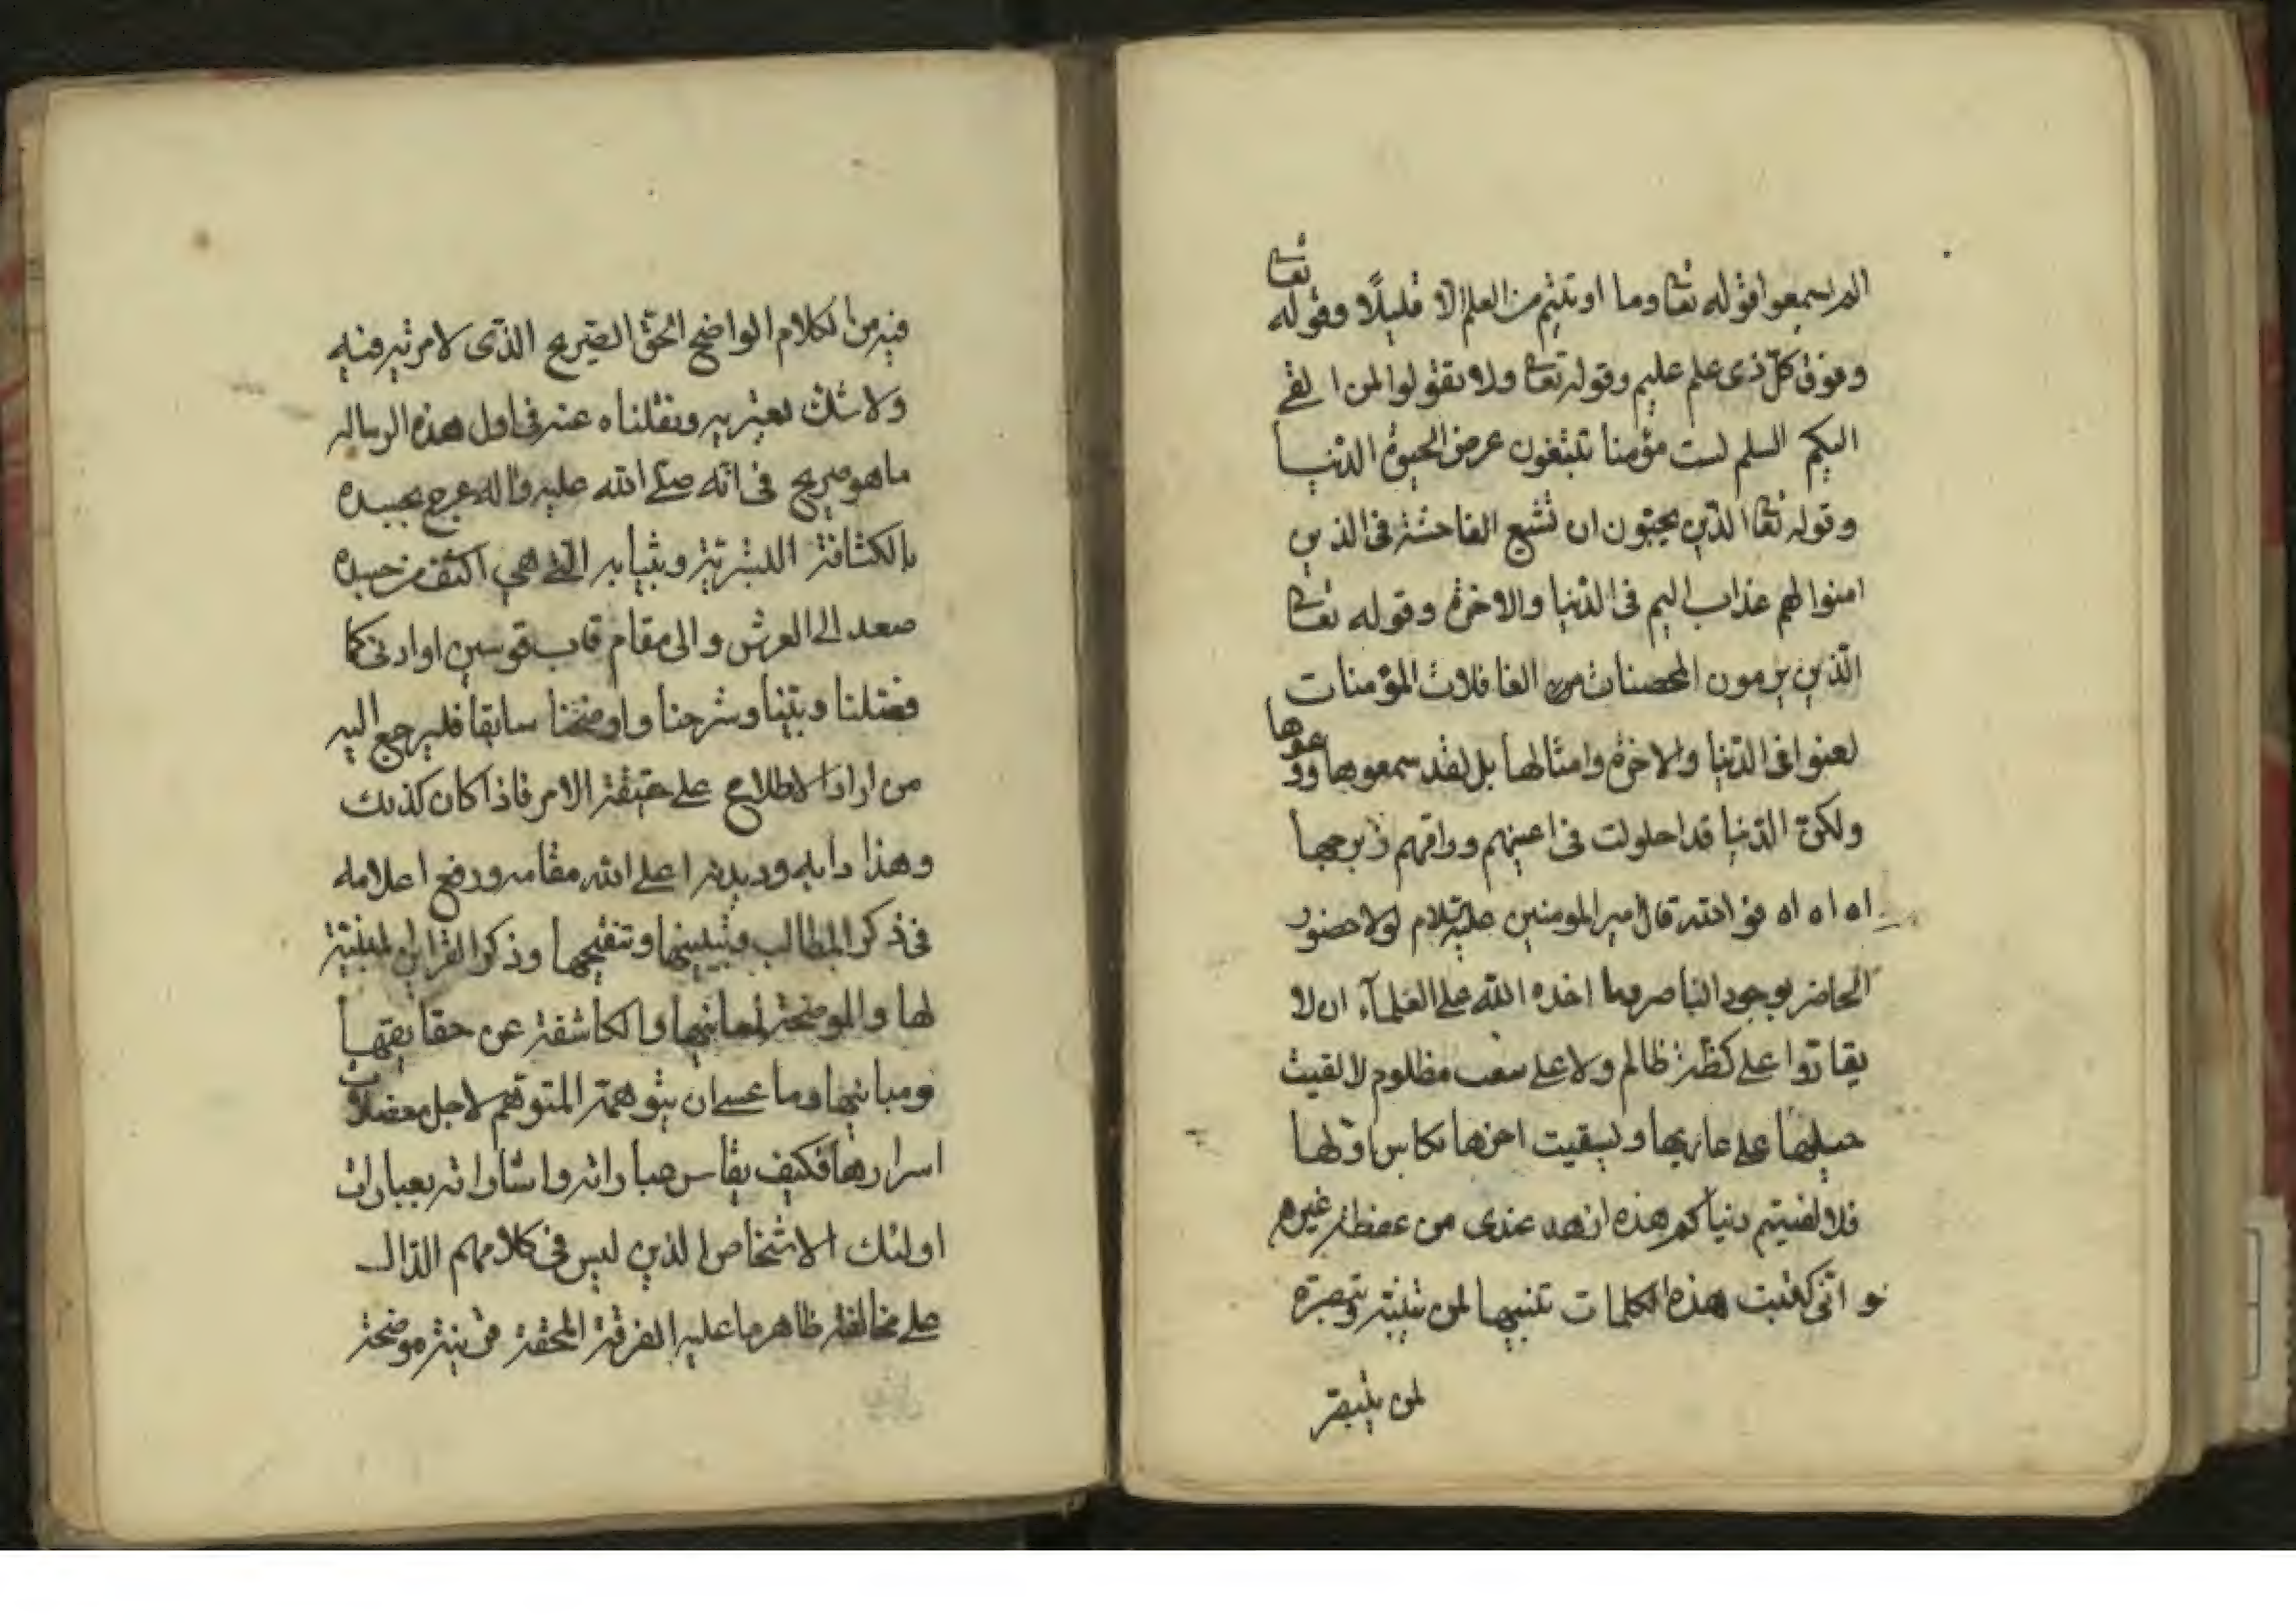 الم يسمعوا قوله تعا وما اوتيتم من العلم الا قليلاً وقوله تعا
وفوق كلّ ذى علم عليم وقوله تعا ولا تقولوا لمن القى
اليكم السلم لست مؤمنا تبتغون عرض الحيوة الدّنيا
وقوله تعا الذّين يحبّون ان تشيع الفاحشة فى الذين
امنوا لهم عذاب اليم فى الدّنيا والاخرة وقوله تعا
الّذين يرمون المحصنات الغافلات المؤمنات
لعنوا فى الدّنيا والاخرة وامثالها بل لقد سمعوها ووعوها
ولكنّ الدّنيا قد احلولت فى اعينهم وراقهم زبرجها
اه اه اه فو الله قال امير المومنين عليه السلام لولا حضور
الحاضر بوجود الناصر وما اخذه الله على العلمآء ان لا
يقارّوا على كظّة ظالم ولا على سغب مظلوم لالقيت
حبلها على غاربها ولسقيت اخرها بكاس اوّلها
فلالفيتم دنياكم هذه ازهد عندى من عفطة
و انّى كتبت هذه الكلمات تنبيها لمن يتنبّه وتبصرة
لمن يتبصّر
فيه من الكلام الواضح الحقّ الصّريح الذّى لا مرية فيه
ولا شك يعتريه ونقلناه عنه فى اول هذه الرساله
ما هو صريح فى انّه صلّى الله عليه واله عرج بجسده
بالكثافة البشريّة وبثيابه الّتى هى اكثف من جسده
صعد الى العرش والى مقام قاب قوسين او ادنى كما
فصّلنا وبيّنا وشرحنا واوضحنا سابقا فليرجع اليه
من اراد الاطلاع على حقيقة الامر فاذا كان كذلك
وهذا دابه وديدنه اعلى الله مقامه ورفع اعلامه
فى ذكر المطالب وتبيينها وتنقيحها وذكر القراين المبيّنة
لها والموضحة لمعانيها والكاشفة عن حقايقها
ومبانيها وما عسى ان يتوهمّه المتوهّم لاجل معضلات
اسرارها فكيف يقاس عباراته واشاراته بعبارات
اولئك الاشخاص الذين ليس فى كلامهم الدّال
على مخالفة ظاهر ما عليه الفرقة المحقّة قرينة موضحة